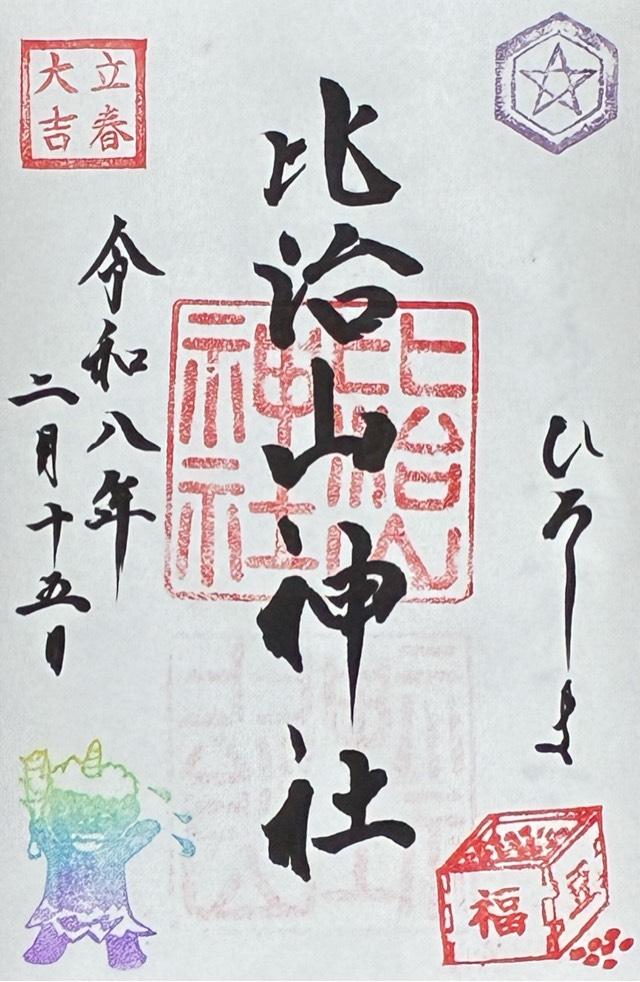 ひろしま
比治山神社
比治山
神社
令和八年
二月十五日
立春
大吉
福